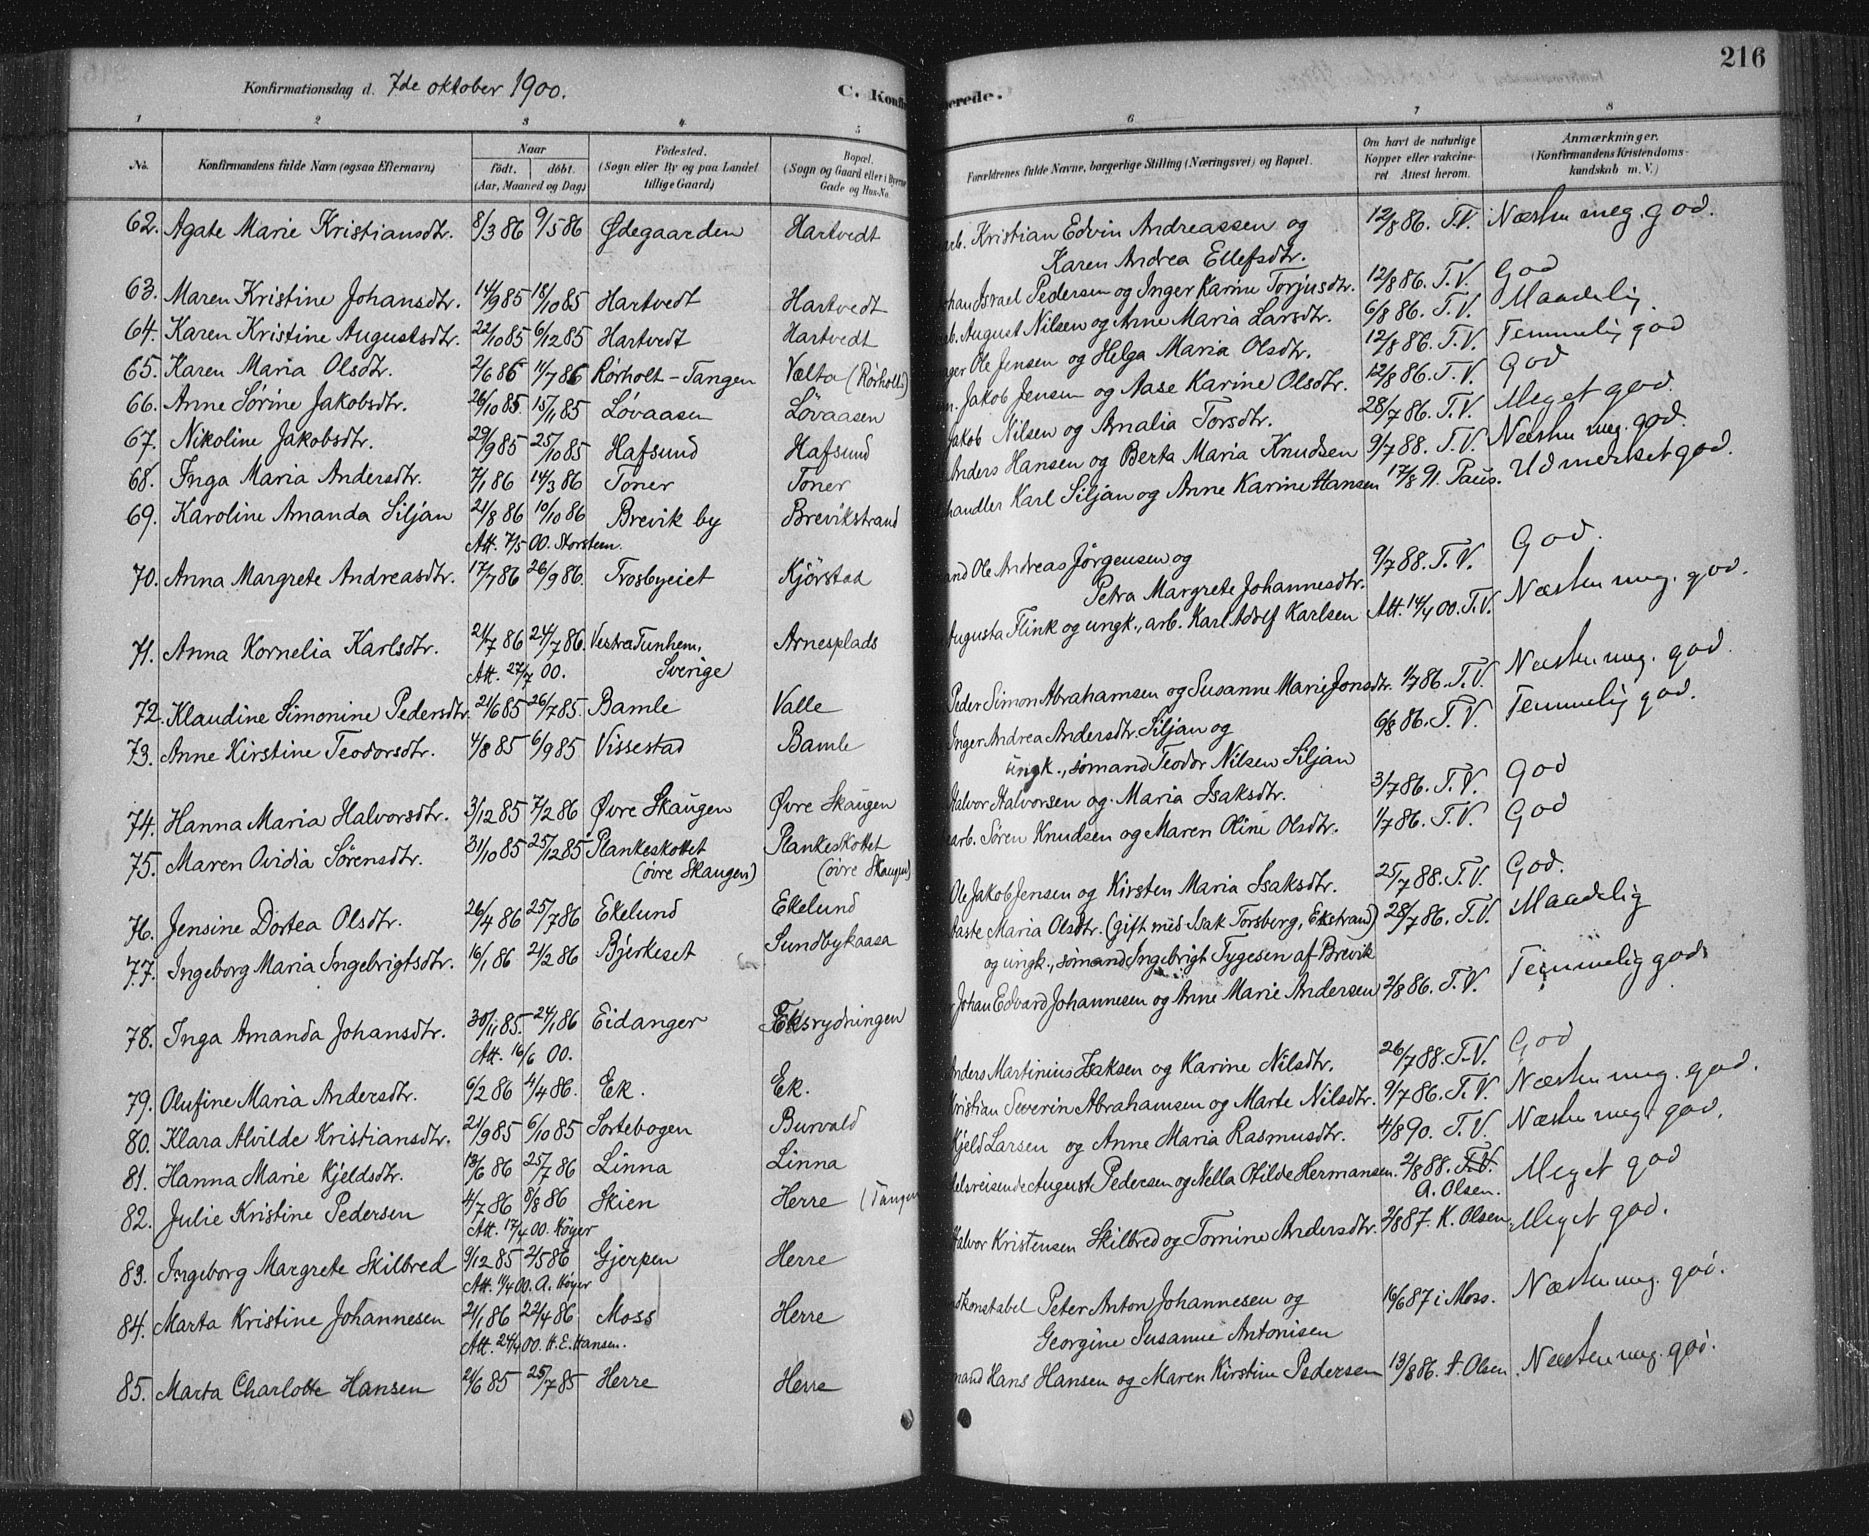 216
Konfirmationsdag d. 7de oktober 1900.
C. Konfir
erede.
1 2 3 4 5 6 7 8
No. Konfirmandens fulde Navn (ogsaa Efternavn) Naar født. døbt. (Aar, Maaned og Dag) Fødested. (Sogn eller By og paa Landet tillige Gaard) Bopæl. (Sogn og Gaard eller i Byerne Gade og Hus-No. Forældrenes fulde Navne, borgerlige Stilling (Næringsvei) og Bopæl. Om havt de naturlige Kopper eller vakcineret Attest herom. Anmærkninger. (Konfirmandens Kristendomskundskab m. V.)
62. Agate Marie Kristiansdtr. 8/3 86 9/5 86 Ødegaarden Hartvedt arb. Kristian Edvin Andreassen og 12/8 86. T.V. Næsten meg. god.
Karen Andrea Ellefsdtr.
63. Maren Kristine Johansdtr. 14/9 85 18/10 85 Hartvedt Hartvedt Johan Israel Pedersen og Inger Karine Torjusdtr. 12/8 86. T.V. God
64. Karen Kristine Augustsdtr. 22/10 85 6/12 85 Hartvedt Hartvedt arb. August Nilsen og Anne Maria Larsdtr. 6/8 86. T.V. Maadelig.
65. Karen Maria Olsdtr. 2/6 86 11/7 86 Rørholt - Tangen Vælta (Rørholt) Ole Jensen og Helga Maria Olsdtr. 12/8 86. T.V. Temmelig god
66. Anne Sørine Jakobsdtr. 26/10 85 15/11 85 Løvaasen Løvaasen Jakob Jensen og Aase Karine Olsdtr. 12/8 86. T.V. God
67. Nikoline Jakobsdtr. 29/9 85 25/10 85 Hafsund Hafsund Jakob Nilsen og Amalia Torsdtr. 28/7 86. T.V. Meget god.
68. Inga Maria Andersdtr. 7/1 86 14/3 86 Toner Toner Anders Hansen og Berta Maria Knudsen 9/7 88. T.V. Næsten meg. god.
69. Karoline Amanda Siljan 21/8 86 10/10 86 Brevik by Brevikstrand handler Karl Siljan og Anne Karine Hansen 17/8 91. Paus. Udmerket god.
Att. 7/5 00. Storsteen.
70. Anna Margrete Andreasdtr. 17/7 86 26/9 86. Trosbyeiet Kjørstad Ole Andreas Jørgensen og 9/7 88. T.V. God.
Petra Margrete Johannesdtr.
71. Anna Kornelia Karlsdtr. 21/7 86 24/7 86. Vestra Tunhem, Arnesplads Augusta Flink og ungk., arb. Karl Adolf Karlsen Att. 14/4 00. T.V. Næsten meg. god.
Att. 27/7 00. Sverige
72. Klaudine Simonine Pedersdtr. 21/6 85 26/7 85. Bamle Valle Peder Simon Abrahamsen og Susanne Marie Jonsdtr. 1/7 86. T.V. Næsten meg. god.
73. Anne Kirstine Teodorsdtr. 4/8 85 6/9 85 Vissestad Bamle Inger Andrea Andersdtr. Siljan og 6/8 86. T.V. Temmelig god.
ungk., sømand Teodor Nilsen Siljan
74. Hanna Maria Halvorsdtr. 3/12 85 7/2 86 Øvre Skaugen Øvre Skaugen Halvor Halvorsen og Maria Isaksdtr. 3/7 86. T.V. God
75. Maren Ovidia Sørensdtr. 31/10 85 25/12 85 Plankeskottet Plankeskottet arb. Søren Knudsen og Maren Oline Olsdtr. 1/7 86. T.V. God
(øvre Skaugen) (øvre Skaugen)
76. Jensine Dortea Olsdtr. 26/4 86 25/7 86 Ekelund Ekelund Ole Jakob Jensen og Kirsten Maria Isaksdtr. 25/7 88. T.V. God.
77. Ingeborg Maria Ingebrigtsdtr. 16/1 86 21/2 86 Bjerkeset Sundbykaasa Aaste Maria Olsdtr. (gift med Isak Torsberg, Ekstrand) 28/7 86. T.V. Maadelig
og ungk., sømand Ingebrigt Tygesen af Brevik
78. Inga Amanda Johansdtr. 30/11 85. 24/1 86 Eidanger Eksrydningen Johan Edvard Johannesen og Anne Marie Andersen 2/8 86. T.V. Temmelig god.
Att. 16/6 00.
79. Olufine Maria Andersdtr. 6/2 86 4/4 86. Ek. Ek. Anders Martinius Isaksen og Karine Nilsdtr. 26/7 88. T.V. God
80. Klara Alvilde Kristiansdtr. 21/9 85 6/10 85 Sortebogen Burvald Kristian Severin Abrahamsen og Marte Nilsdtr. 9/7 86. T.V. Næsten meg. god.
81. Hanna Marie Kjeldsdtr. 13/6 86 25/7 86 Linna Linna Kjeld Larsen og Anne Maria Rasmusdtr. 4/8 90. T.V. Næsten meg. god.
82. Julie Kristine Pedersen 4/7 86 8/8 86 Skien Herre (Tangen delsreisende August Pedersen og Nella Otilde Hermansen. 2/8 88. T.V. Meget god
Att. 17/4 00. Køyer A. Olsen.
83. Ingeborg Margrete Skilbred 9/12 85 2/5 86 Gjerpen Herre Halvor Kristensen Skilbred og Tomine Andersdtr. 2/8 87. K. Olsen. Meget god.
Att. 11/4 00. A. Køyer
84. Marta Kristine Johannesen 21/1 86 22/4 86 Moss Herre konstabel Peter Anton Johannesen og 16/6 87 i Moss. Næsten meg. god.
Att. 24/4 00. H. E. Hansen. Georgine Susanne Antonisen
85. Marta Charlotte Hansen 21/6 85 25/7 85 Herre Herre mand Hans Hansen og Maren Kirstine Pedersen 13/8 86. Olsen. Næsten meg. god.